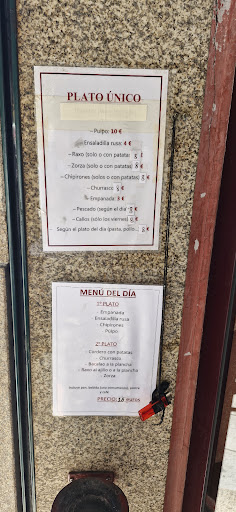 PLATO ÚNICO
- Pulpo: 10 €
- Ensaladilla rusa: 4 €
- Raxo (solo o con patatas: 8 €
- Zorza (solo o con patatas) 8 €
- Chipirones (solos o con patatas) 8 €
- Churrasco: €
- Empanada: 3 €
- Pescado (según el día €
- Callos (sólo los viernes) €
Según el plato del día (pasta, pollo €
MENÚ DEL DÍA
1º PLATO
- Empanada
- Ensaladilla rusa
- Chipirones
- Pulpo
2º PLATO
- Cordero con patatas
- Churrasco
a la plancha
- Raxo al ajillo o a la plancha
- Zorza
y café
PRECIO: 13 euros